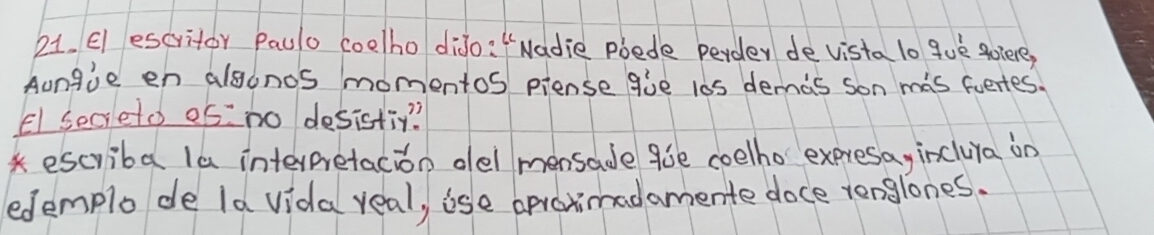 21. El escritor Paulo coelho dijo: "Nadie púede perder de vista lo qué quiere,
Aunqúe en algunos momentos piense qúe los demás son más fuertes.
El secreto es: no desistir"
* escriba la interpretación del mensaje qúe coelho expresa, incluya ún
ejemplo de la vida real, úse aproximadamente doce renglones.